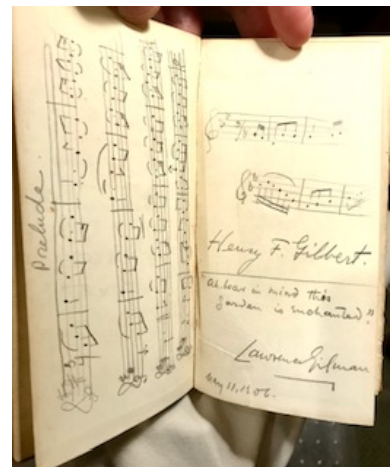 Prelude.
Henry F. Gilbert.
"Ah bear in mind this
garden is enchanted."
Lawrence Gilman
May 11, 1906.